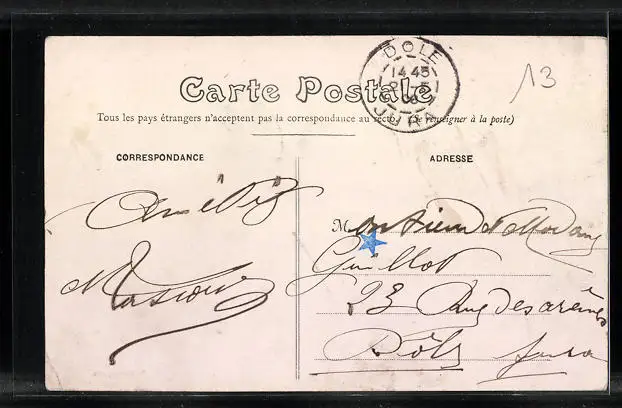 Carte Postale
Tous les pays étrangers n'acceptent pas la correspondance au recto. (Se renseigner à la poste)
DOLE
14 45
JURA
13
CORRESPONDANCE
ADRESSE
Amitiés
Monsieur et Madame
Guillot
23 Rue des arènes
Dôle Jura